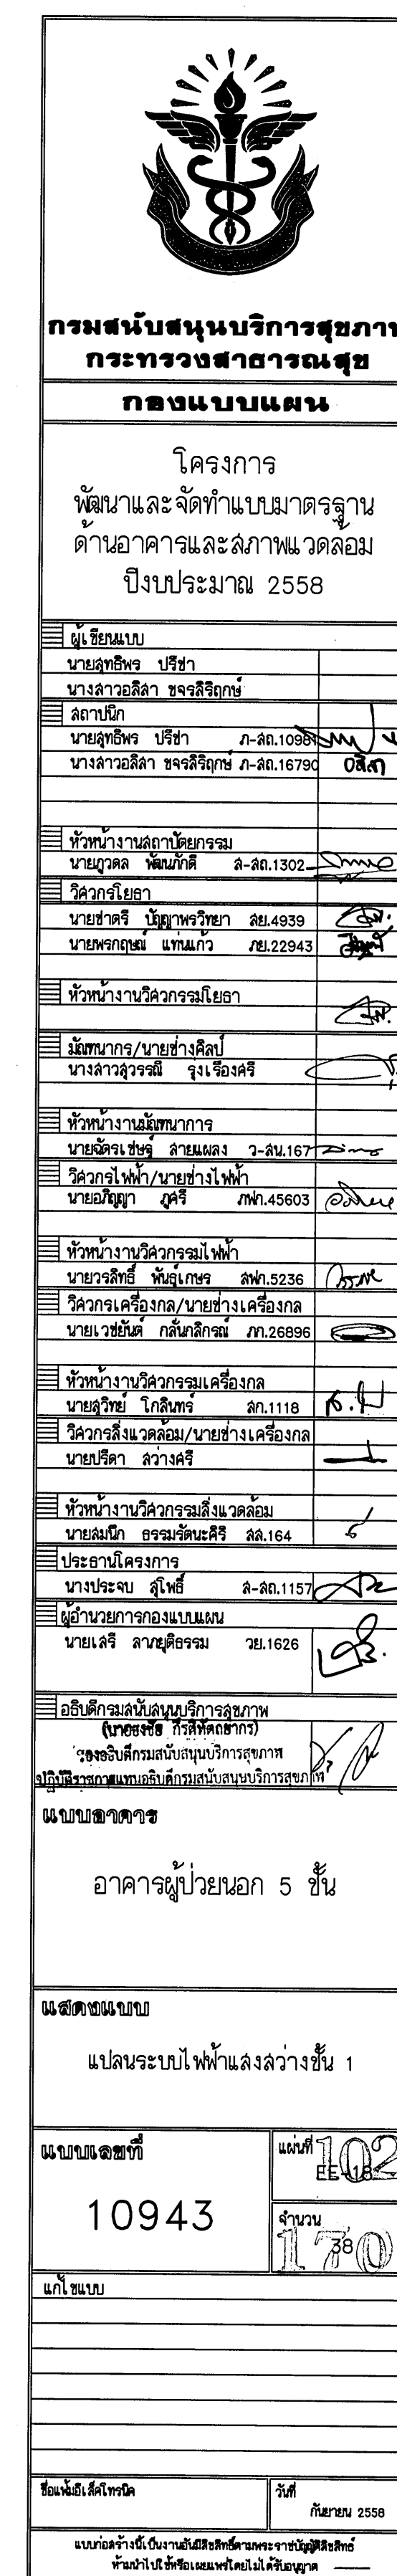 กรมสนับสนุนบริการสุขภาพ
กระทรวงสาธารณสุข
กองแบบแผน
โครงการ
พัฒนาและจัดทำแบบมาตรฐาน
ด้านอาคารและสภาพแวดล้อม
ปีงบประมาณ 2558
ผู้เขียนแบบ
นายสุทธิพร ปรีชา
นางสาวอลิสา ขจรสิริฤกษ์
สถาปนิก
นายสุทธิพร ปรีชา ภ-สถ.10981
นางสาวอลิสา ขจรสิริฤกษ์ ภ-สถ.16790 อลิสา
หัวหน้างานสถาปัตยกรรม
นายภูวดล พัฒนภักดี ส-สถ.1302
วิศวกรโยธา
นายชาตรี ปัญญาพรวิทยา สย.4939
นายพรกฤษณ์ แท่นแก้ว ภย.22943
หัวหน้างานวิศวกรรมโยธา
มัณฑนากร/นายช่างศิลป์
นางสาวสุวรรณี รุงเรืองศรี
หัวหน้างานมัณฑนาการ
นายฉัตรเชษฐ์ สายแผลง ว-สน.167
วิศวกรไฟฟ้า/นายช่างไฟฟ้า
นายอภิญญา ภูศรี ภฟก.45603
หัวหน้างานวิศวกรรมไฟฟ้า
นายวรสิทธิ์ พันธุ์เกษร สฟก.5236
วิศวกรเครื่องกล/นายช่างเครื่องกล
นายเวชยันต์ กลั่นกสิกรณ์ ภก.26896
หัวหน้างานวิศวกรรมเครื่องกล
นายสุวิทย์ โกสินทร์ สก.1118
วิศวกรสิ่งแวดล้อม/นายช่างเครื่องกล
นายปรีดา สว่างศรี
หัวหน้างานวิศวกรรมสิ่งแวดล้อม
นายสมนึก ธรรมรัตนะศิริ สส.164
ประธานโครงการ
นางประจบ สุโพธิ์ ส-สถ.1157
ผู้อำนวยการกองแบบแผน
นายเสรี ลาภยุติธรรม วย.1626
อธิบดีกรมสนับสนุนบริการสุขภาพ
(นายธงชัย กีรติหัตถยากร)
รองอธิบดีกรมสนับสนุนบริการสุขภาพ
ปฏิบัติราชการแทนอธิบดีกรมสนับสนุนบริการสุขภาพ
แบบอาคาร
อาคารผู้ป่วยนอก 5 ชั้น
แสดงแบบ
แปลนระบบไฟฟ้าแสงสว่างชั้น 1
แบบเลขที่
10943
แผ่นที่ 102
EE-18
จำนวน
38
170
แก้ไขแบบ
ชื่อแฟ้มอิเล็คโทรนิค
วันที่
กันยายน 2558
แบบก่อสร้างนี้เป็นงานอันมีลิขสิทธิ์ตามพระราชบัญญัติลิขสิทธ์
ห้ามนำไปใช้หรือเผยแพร่โดยไม่ได้รับอนุญาต